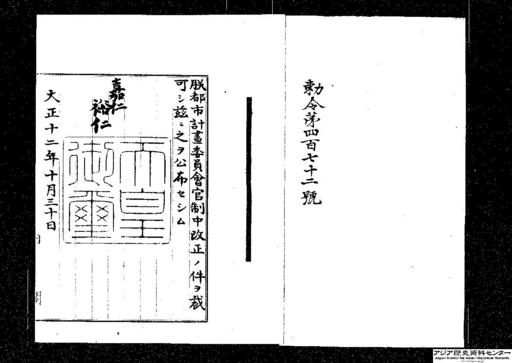 勅令第四百七十二號
朕都市計畫委員會官制中改正ノ件ヲ裁
可シ茲ニ之ヲ公布セシム
嘉仁
裕仁
天皇
御璽
大正十二年十月三十日
アジア歴史資料センター
Japan Center for Asian Historical Records